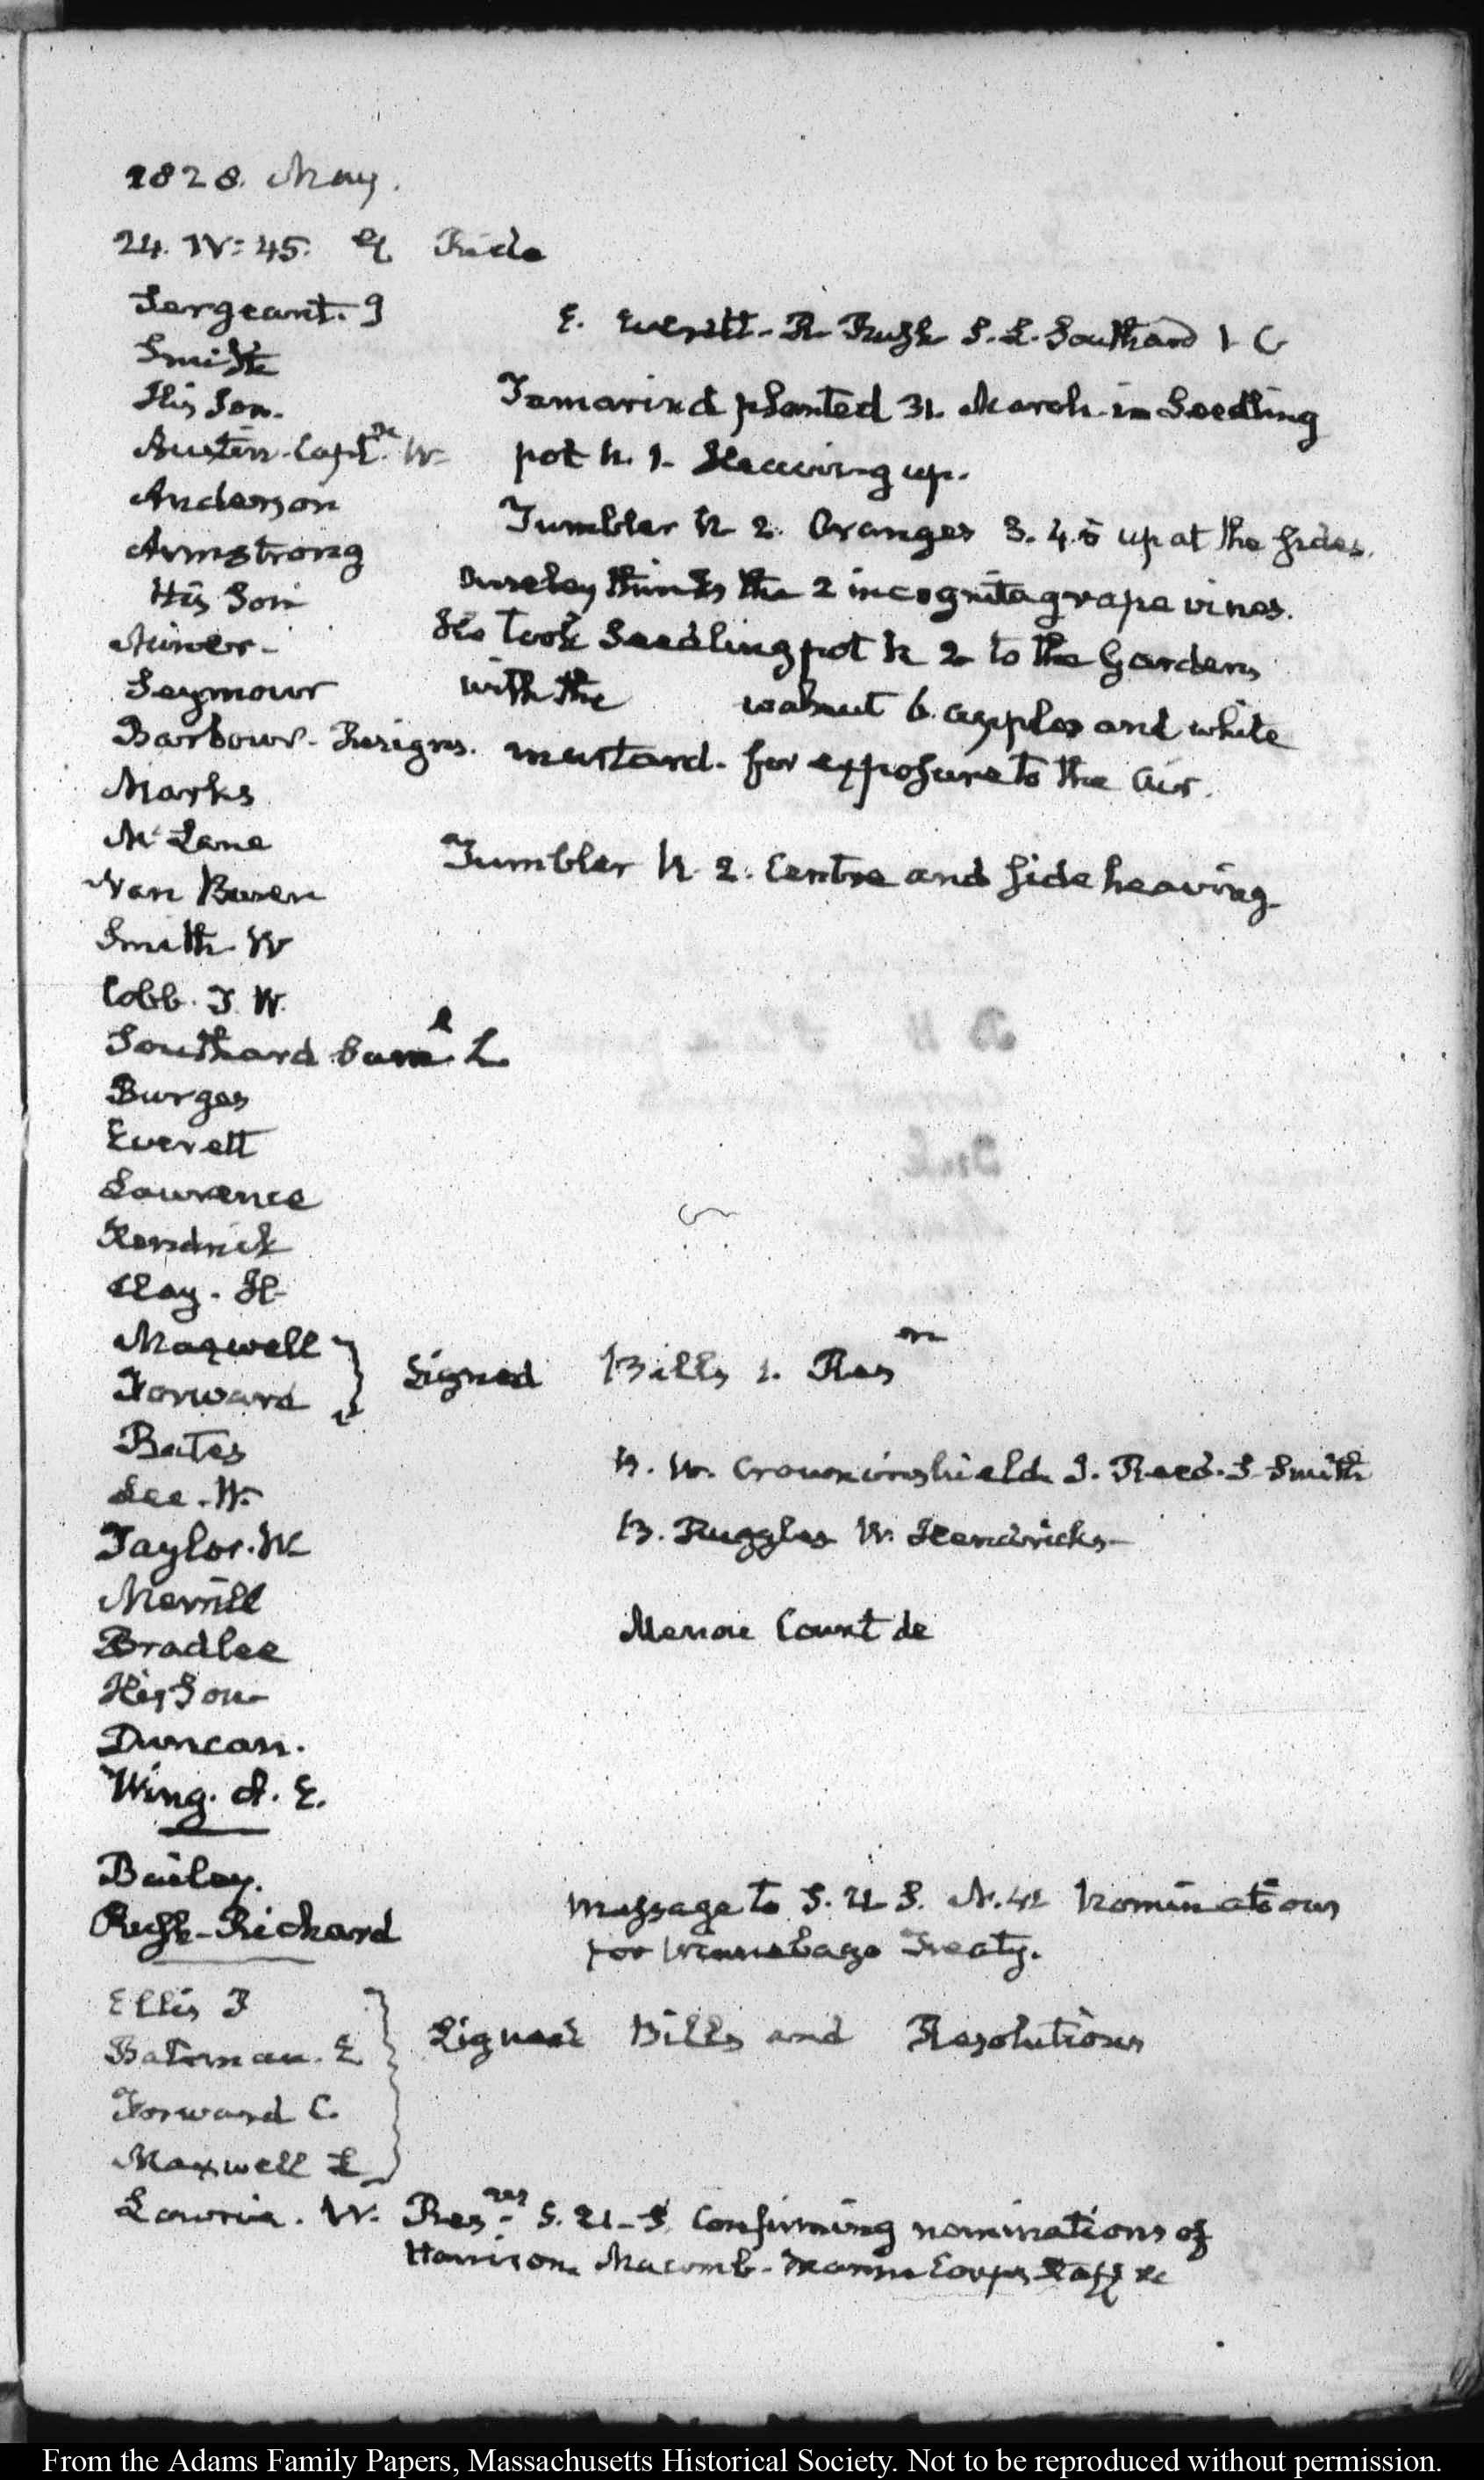 1828. May.
24. IV: 45. Ride
Sergeant. J
E. Everett. R Rush S. L. Southard
Smith
His Son.
Tamarind planted 31. March in Seedling
Austin. Captn. W.
pot N. 1. Heaving up.
Anderson
Tumbler N 2. Oranges 3. 4. 5 up at the sides.
Armstrong
Ousley thinks the 2 incognita grape vines.
His Son
He took Seedling pot N 2 to the Garden,
Miner
Seymour
with the walnut 6. apples and white
Barbour. Resigns.
mustard. for exposure to the air.
Marks
McLane
Tumbler N. 2. Centre and side heaving
Van Buren
Smith W
Cobb. T. W.
Southard Saml. L.
Burges
Everett
Lawrence
Kendrick
Clay. H
Maxwell
Forward
Signed Bills 1. Reson
Bates
B. W. Crowninshield J. Reed. S. Smith
Lee. W.
B. Ruggles W. Hendricks
Taylor. W.
Merrill
Menou Count de
Bradlee
His Son
Duncan.
Wing. A. E.
Bailey.
Message to S. U S. N. 42 Nominations
Rush. Richard
for Winnebago Treaty.
Ellis P
Bateman. E
Signed Bills and Resolutions
Forward C.
Maxwell L
Lowrie. W. Resns. S. U. S. Confirming nominations of
Harrison. Macomb. Marine Corps Staff &c
From the Adams Family Papers, Massachusetts Historical Society. Not to be reproduced without permission.